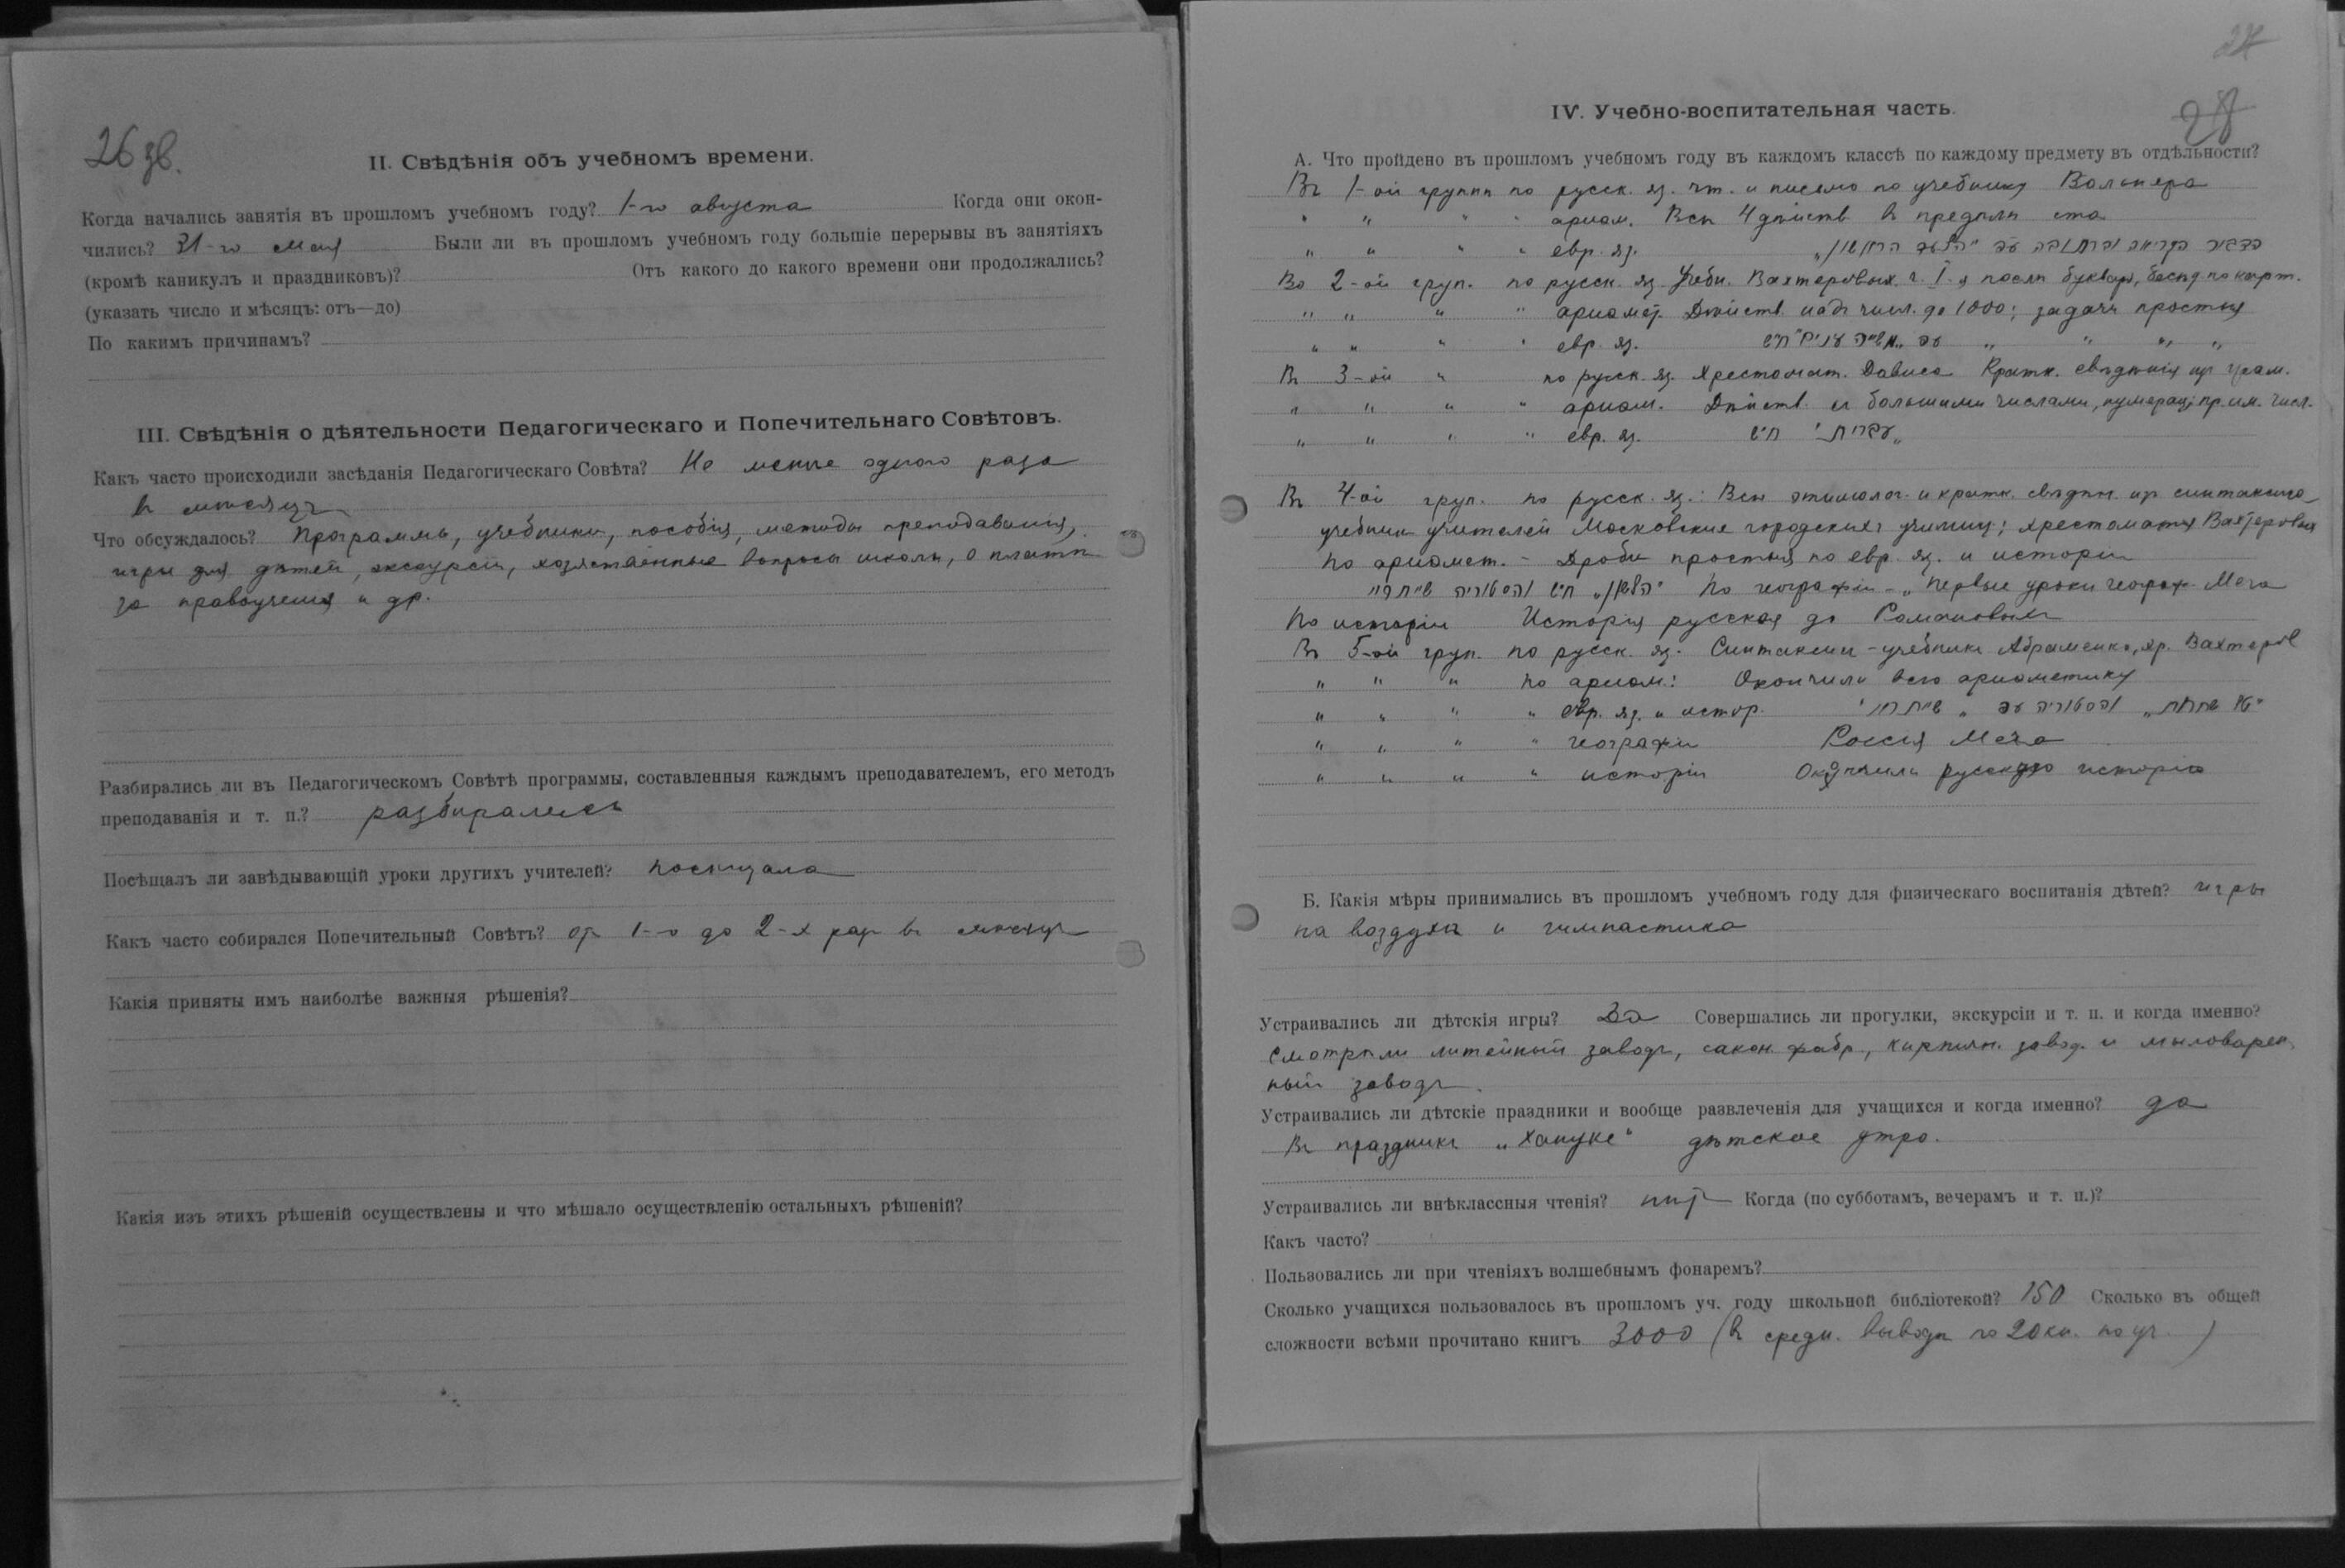 26 зв.
II. Свѣдѣнія объ учебномъ времени.
Когда начались занятія въ прошломъ учебномъ году? 1-го августа Когда они окон-
чились? 31-го мая Были ли въ прошломъ учебномъ году большіе перерывы въ занятіяхъ
(кромѣ каникулъ и праздниковъ)? Отъ какого до какого времени они продолжались?
(указать число и мѣсяцъ: отъ—до)
По какимъ причинамъ?
III. Свѣдѣнія о дѣятельности Педагогическаго и Попечительнаго Совѣтовъ.
Какъ часто происходили засѣданія Педагогическаго Совѣта? Не менѣе одного раза
въ мѣсяцъ
Что обсуждалось? Программы, учебники, пособія, методы преподаванія,
игры для дѣтей, экскурсіи, хозяственные вопросы школы, о платѣ
за правоученія и др.
Разбирались ли въ Педагогическомъ Совѣтѣ программы, составленныя каждымъ преподавателемъ, его методъ
преподаванія и т. п.? разбирались
Посѣщалъ ли завѣдывающій уроки другихъ учителей? посѣщала
Какъ часто собирался Попечительный Совѣтъ? от 1-го до 2-х раз въ мѣсяцъ
Какія приняты имъ наиболѣе важныя рѣшенія?
Какія изъ этихъ рѣшеній осуществлены и что мѣшало осуществленію остальныхъ рѣшеній?
IV. Учебно-воспитательная часть.
А. Что пройдено въ прошломъ учебномъ году въ каждомъ классѣ по каждому предмету въ отдѣльности?
Въ 1-ой группѣ по русск. яз. чт. и письмо по учебнику Вольпера
" " " " ариѳм. Всѣ 4 дѣйств. въ предѣлѣ ста
" " " " евр. яз.
Во 2-ой груп. по русск. яз. Учебн. Вахтеровых ч. I-я послѣ букваря, бесѣд. по карт.
" " " " ариѳмет. Дѣйств. надъ числ. до 1000; задачи простыя
" " " " евр. яз. " " " "
Въ 3-ой " по русск. яз. Хрестомат. Дависа Кратк. свѣдѣнія из грам.
" " " " ариѳм. Дѣйств. съ большими числами, нумерац; пр. им. числ.
" " " " евр. яз.
Въ 4-ой груп. по русск. яз.: Всѣ этимолог. и кратк. свѣдѣн. из синтаксиса
учебник учителей Московскихъ городскихъ училищ; хрестоматія Вахтеровых
По ариѳмет. - Дроби простыя по евр. яз. и исторіи
По географіи - „Первые уроки географ. Меча
По исторіи Исторія русская до Романовыхъ
Въ 5-ой груп. по русск. яз. Синтаксисъ - учебникъ Абраменко, хр. Вахтеров
" " " по ариѳм: Окончили всю ариѳметику
" " " " евр. яз. и истор.
" " " " географіи Россія Меча
" " " " исторіи Окончили русскую исторію
Б. Какія мѣры принимались въ прошломъ учебномъ году для физическаго воспитанія дѣтей? игры
на воздухѣ и гимнастика
Устраивались ли дѣтскія игры? Да Совершались ли прогулки, экскурсіи и т. п. и когда именно?
Смотрѣли литейный заводъ, фабр, кирпичн. завод. и мыловарен-
ный заводъ.
Устраивались ли дѣтскіе праздники и вообще развлеченія для учащихся и когда именно? да
Въ праздникъ „Хануке" дѣтское утро.
Устраивались ли внѣклассныя чтенія? нѣт Когда (по субботамъ, вечерамъ и т. п.)?
Какъ часто?
Пользовались ли при чтеніяхъ волшебнымъ фонаремъ?
Сколько учащихся пользовалось въ прошломъ уч. году школьной библіотекой? 150 Сколько въ общей
сложности всѣми прочитано книгъ 3000 (въ средн. выводѣ по 20 кн. на уч.)